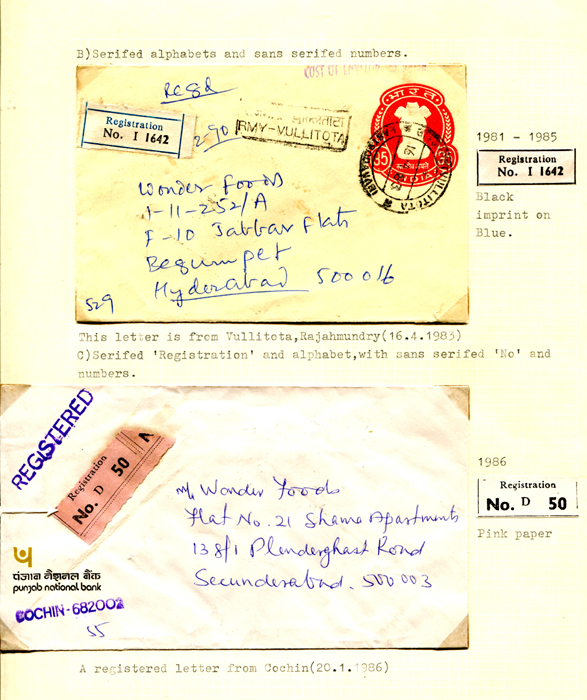 B)Serifed alphabets and sans serifed numbers.
COST OF
Regd
Registration
No. I 1642
2-90
RMY-VULLITOTA
भारत
35
INDIA
VULLITOTA
Wonder Foods
1-11-252/A
F-10 Jabbar Flats
Begumpet
Hyderabad 500016
529
1981 - 1985
Registration
No. I 1642
Black
imprint on
Blue.
This letter is from Vullitota,Rajahmundry(16.4.1983)
C)Serifed 'Registration' and alphabet,with sans serifed 'No' and
numbers.
REGISTERED
Registration
No. D 50
N
M/s Wonder Foods
Flat No. 21 Shama Apartments
138/1 Plenderghast Road
Secunderabad. 500 003
पंजाब नैशनल बैंक
punjab national bank
COCHIN-682002
55
1986
Registration
No. D 50
Pink paper
A registered letter from Cochin(20.1.1986)